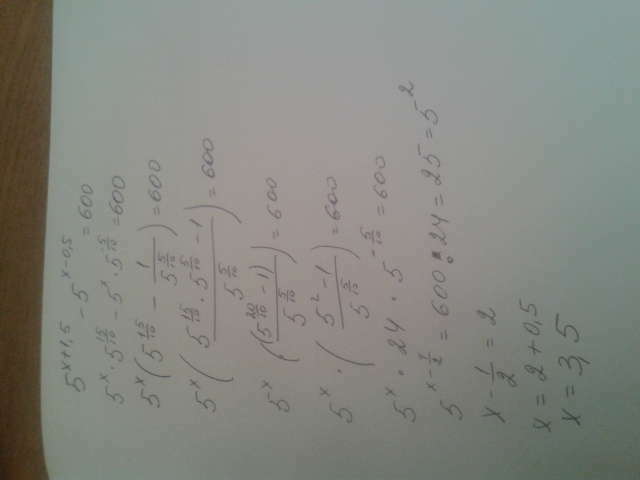 5^{x+1,5} - 5^{x-0,5} = 600
5^x · 5^{15/10} - 5^x · 5^{5/10} = 600
5^x (5^{15/10} - 1/5^{5/10}) = 600
5^x ((5^{15/10} · 5^{5/10} - 1)/5^{5/10}) = 600
5^x · ((5^{20/10} - 1)/5^{5/10}) = 600
5^x · ((5^2 - 1)/5^{5/10}) = 600
5^x · 24 · 5^{-5/10} = 600
5^{x-1/2} = 600 : 24 = 25 = 5^2
x - 1/2 = 2
x = 2 + 0,5
x = 3,5